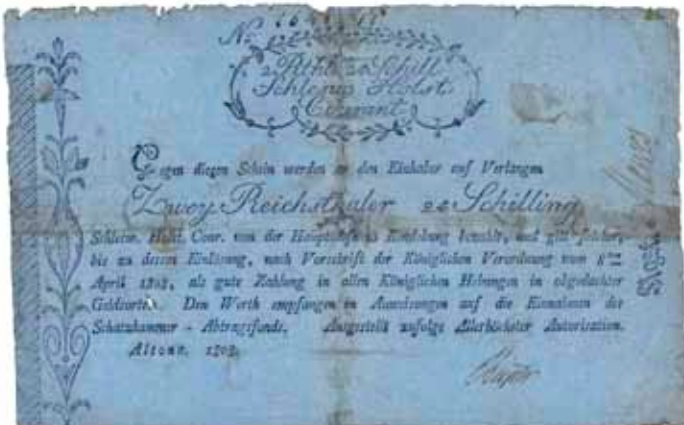 No.
2 Rthlr 28 Schill
Schleswig Holst.
Courant
Gegen diesen Schein werden an den Einhaber auf Verlangen
Zwey Reichsthaler 28 Schilling
Schlesw. Holst. Cour. von der Hauptkasse in bezahlt, und gilt solcher,
bis zu dessen Einlösung, nach Vorschrift der Königlichen Verordnung vom
April als gute Zahlung in allen Königlichen Hebungen in obgedachter
Geldsorte. Den Werth empfangen in Anweisungen auf die Einnahmen des
Schatzkammer - Abtragsfonds. Ausgestellt zufolge Allerhöchster Autorisation.
Altona.